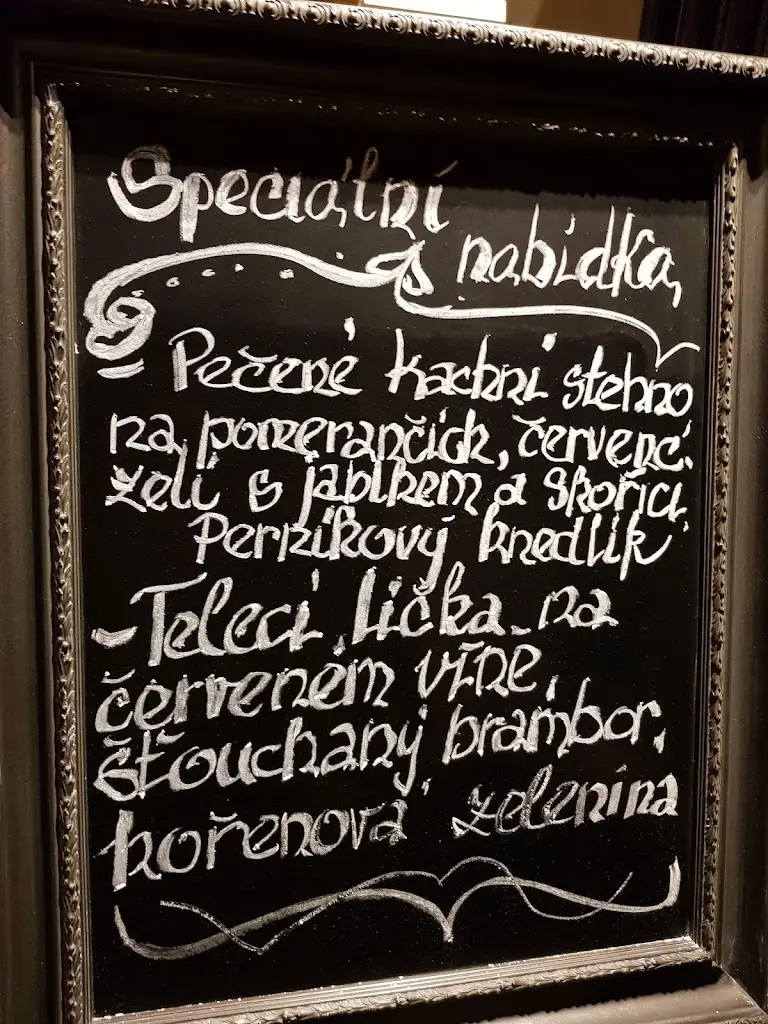 Speciální
nabídka
- Pečené kachní stehno
na pomerančích, červené
zelí s jablkem a skořicí,
Perníkový knedlík
- Telecí líčka na
červeném víně,
šťouchaný brambor,
kořenová zelenina